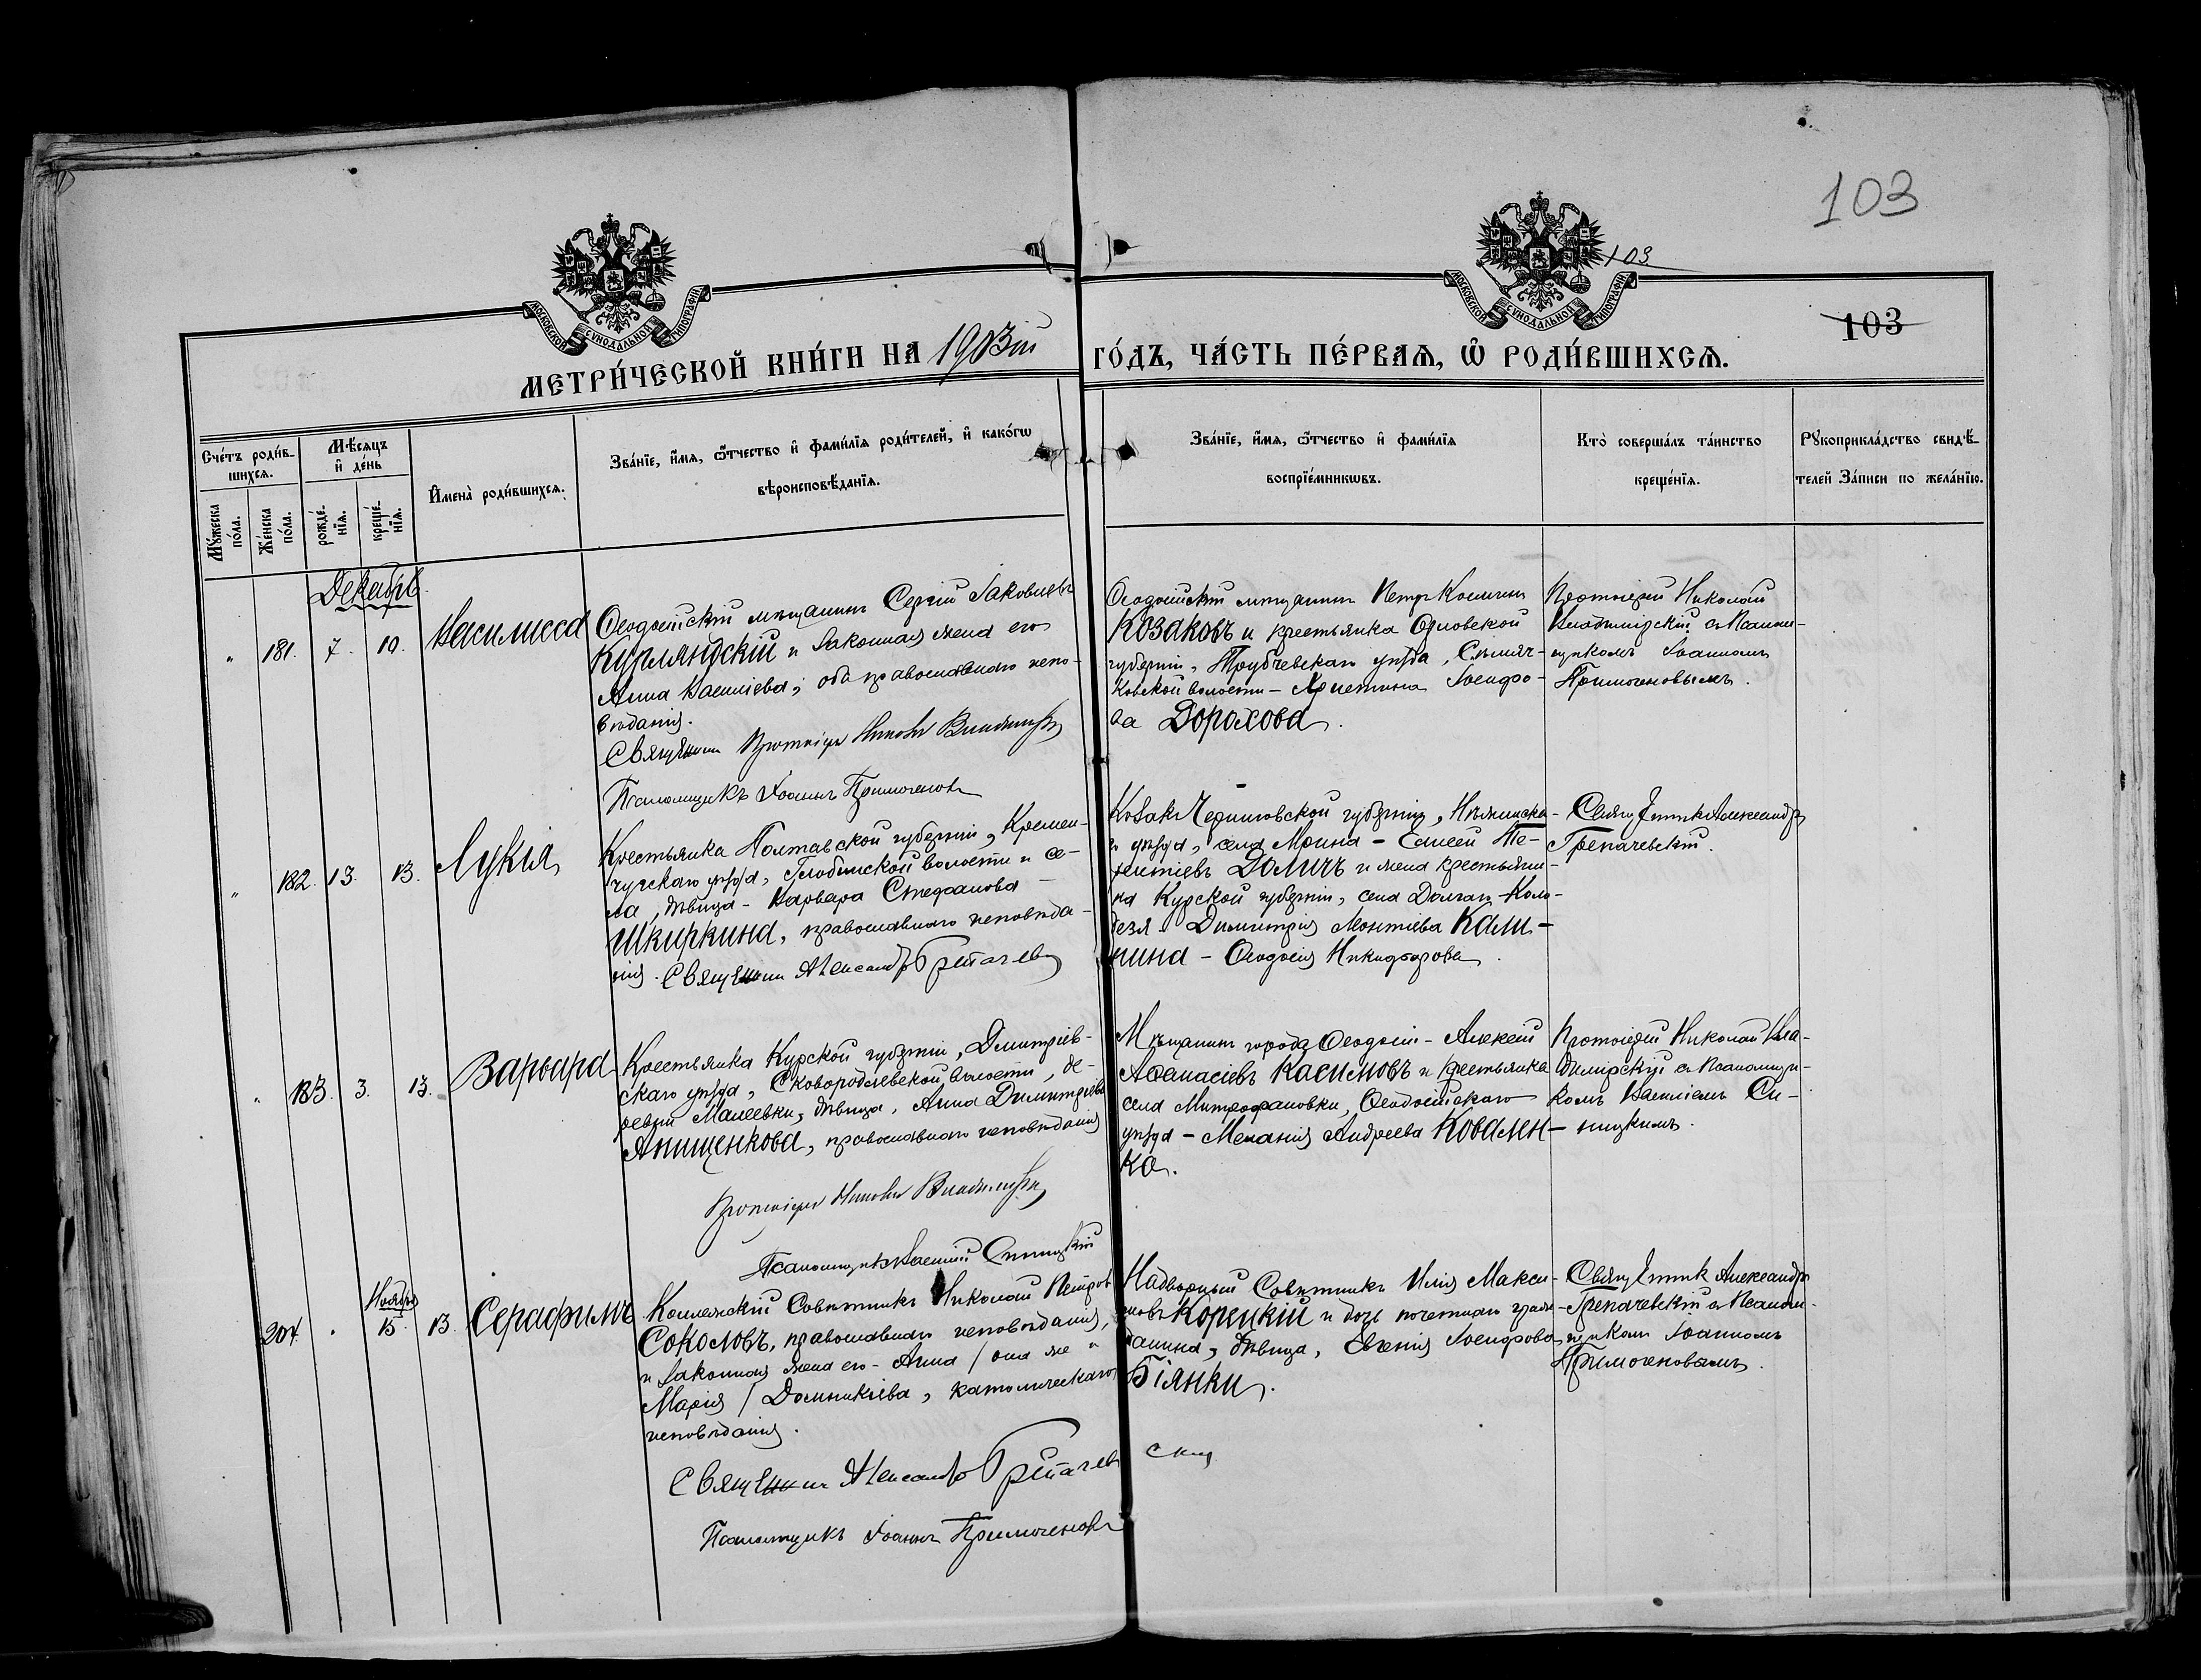 103
103
103
МОСКОВСКОЙ СѴНОДАЛЬНОЙ ТИПОГРАФІИ
МОСКОВСКОЙ СѴНОДАЛЬНОЙ ТИПОГРАФІИ
МЕТРИ́ЧЕСКОЙ КНИ́ГИ НА 1903ій ГО́ДЪ, ЧА́СТЬ ПЕ́РВАѦ, Ѽ РОДИ́ВШИХСѦ.
Сче́тъ роди́в-
шихсѧ.
Му́жеска по́ла.
Же́нска по́ла.
Мѣ́сѧцъ и҆ де́нь
рожде́-
нїѧ.
креще́-
нїѧ.
И҆мена̀ роди́вшихсѧ.
Зва́нїе, и҆́мѧ, ѻ҆́тчество и҆ фами́лїѧ роди́телей, и҆ како́гѡ
вѣроисповѣ́данїѧ.
Зва́нїе, и҆́мѧ, ѻ҆́тчество и҆ фами́лїѧ
воспрїе́мникѡвъ.
Кто̀ соверша́лъ та́инство
креще́нїѧ.
Рꙋкоприкла́дство свидѣ́-
телей За́писи по жела́нїю.
Декабрь.
" 181. 7. 10. Василисса
Ѳеодосійскій мѣщанинъ Сергій Іаковлевъ
Курляндскій и законная жена его
Анна Васильева; оба православнаго испо-
вѣданія.
Священникъ Протоіерей Николай Владимірскій
Псаломщикъ Іоаннъ Примоченовъ
Ѳеодосійскій мѣщанинъ Петръ Космичъ
Козаковъ и крестьянка Орловской
губерніи, Трубчевскаго уѣзда, Сѣмяч-
ковской волости – Христина Іосифо-
ва Дорохова.
Протоіерей Николай
Владимірскій съ Псалом-
щикомъ Іоанномъ
Примоченовымъ.
" 182. 13. 13. Лукія
Крестьянка Полтавской губерніи, Кремен-
чугскаго уѣзда, Глобинской волости и се-
ла, дѣвица – Варвара Стефанова
Шкиркина, православнаго исповѣда-
нія. Священникъ Александръ Грепачев
Козакъ Черниговской губерніи, Нѣжинска-
го уѣзда, села Мрина – Елисей Те-
рентіевъ Доличъ и жена крестьяни-
на Курской губерніи, села Долгаго-Коло-
дезя – Димитрія Леонтіева Кали-
нина – Ѳеодосія Никифорова.
Священникъ Александръ
Грепачевскій.
" 183. 3. 13. Варвара
Крестьянка Курской губерніи, Дмитріев-
скаго уѣзда, Сковородневской волости, де-
ревни Малеевки, дѣвица, Анна Димитріева
Анищенкова, православнаго исповѣданія
Протоіерей Николай Владимірскій
Псаломщикъ Василій Синицкій
Мѣщанинъ города Ѳеодосіи – Алексій
Аѳанасіевъ Касимовъ и крестьянка
села Митрофановки, Ѳеодосійскаго
уѣзда – Меланія Андреева Ковален-
ко.
Протоіерей Николай Вла-
димірскій съ Псаломщи-
комъ Василіемъ Си-
ницкимъ.
Ноября
204. " 15. 13. Серафимъ
Коллежскій Совѣтникъ Николай Петровъ
Соколовъ, православнаго исповѣданія,
и законная жена его – Анна / она же и
Марія / Доминикіева, католическаго
исповѣданія.
Священникъ Александръ Грепачевскій
Псаломщикъ Іоаннъ Примоченовъ
Надворный Совѣтникъ Илія Макси-
мовъ Корецкій и дочь почетнаго граж-
данина, дѣвица, Евгенія Іосифова
Біянки.
Священникъ Александръ
Грепачевскій съ Псалом-
щикомъ Іоанномъ
Примоченовымъ.